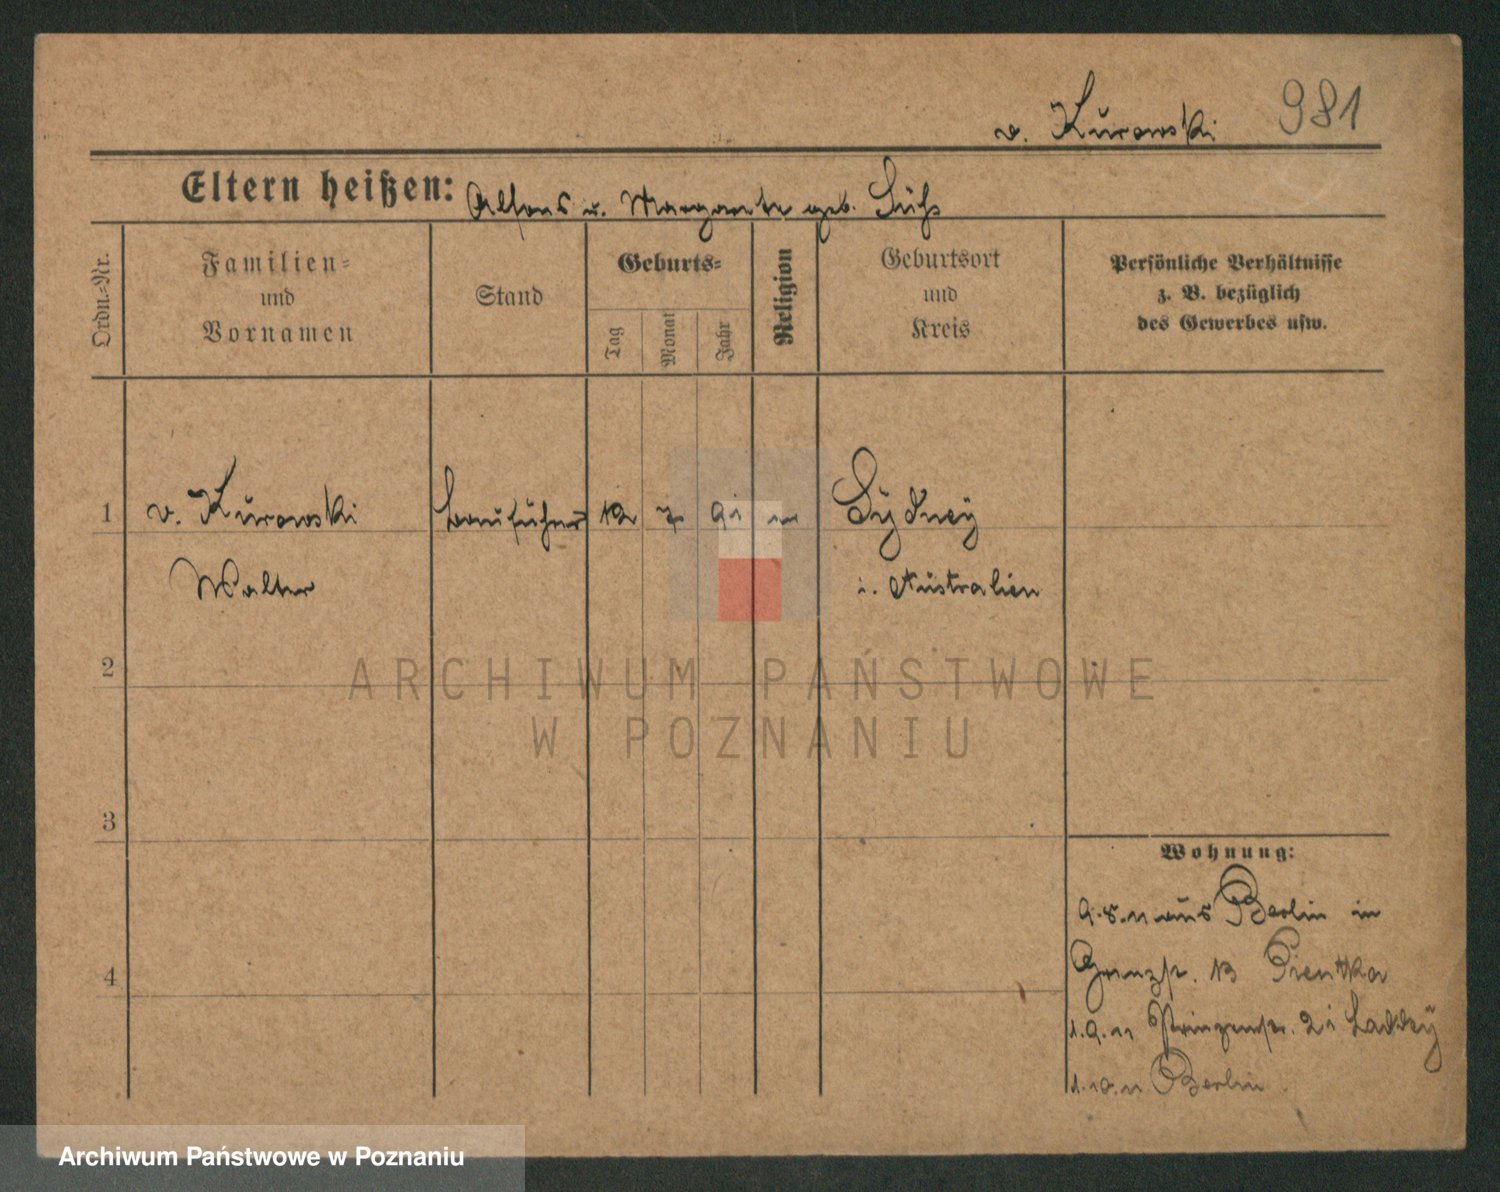 v. Kurowski 981
Eltern heißen: Alfons u. Margarete geb. Süß
Ordn.-Nr.
Familien-
und
Vornamen
Stand
Geburts-
Tag
Monat
Jahr
Religion
Geburtsort
und
Kreis
Persönliche Verhältnisse
z. B. bezüglich
des Gewerbes usw.
1 v. Kurowski Bauführer 12 7 91 Sydney
Walter i. Australien
2
ARCHIWUM PAŃSTWOWE
W POZNANIU
3
Wohnung:
9.5.11 aus Berlin in
Grenzstr. 13 Pientka
1.9.11 Prinzenstr. 21
4
1.10.11 Berlin
Archiwum Państwowe w Poznaniu